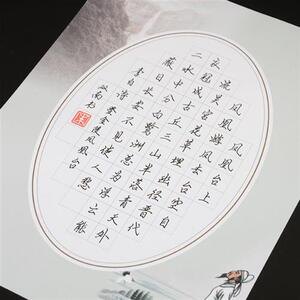 凤凰台上
凤凰游凤去台空江自
流吴宫花草埋幽径晋代
衣冠成古丘三山半落青天外
二水中分白鹭洲总为浮云能
蔽日长安不见使人愁
李白诗登金陵凤凰台